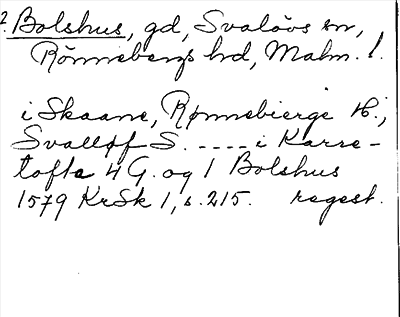 2. Bolshus, gd, Svalövs sn,
Rönnebergs hd, Malm. l.
i Skaane, Rønnebierge H.,
Svalløf S. ---- i Karre-
tofte 4 G. og 1 Bolshus
1579 KrSk 1, s. 215. regest.